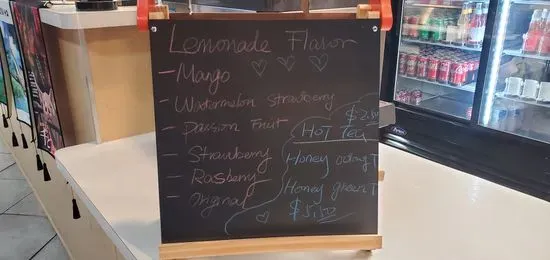 Lemonade Flavor
- Mango
- Watermelon Strawberry
- Passion Fruit
- Strawberry
- Rasberry
- original
$2.50
HOT Tea
Honey oolong T
Honey green T
$5.50